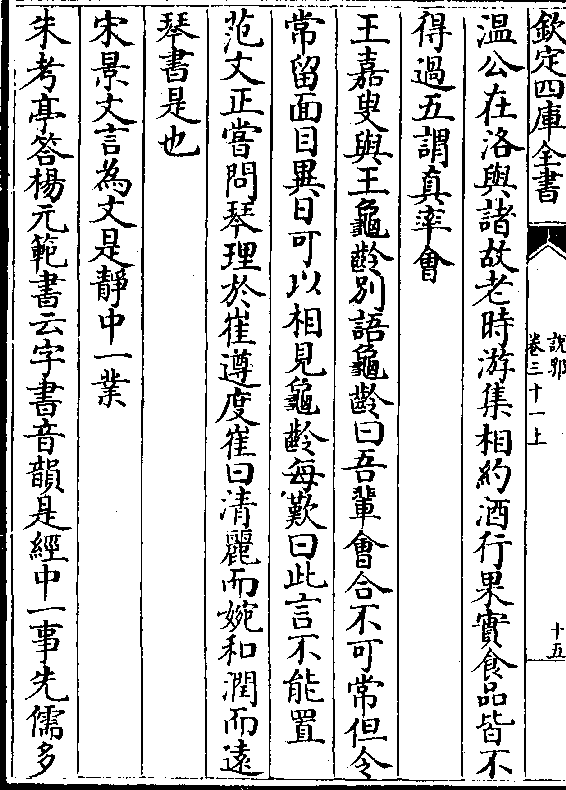 欽定四庫全書
說郛
卷三十一上
十五
溫公在洛與諸故老時游集相約酒行果實食品皆不
得過五謂真率會
王嘉叟與王龜齡別語龜齡曰吾輩會合不可常但令
常留面目異日可以相見龜齡每歎曰此言不能置
范文正嘗問琴理於崔遵度崔曰清麗而婉和潤而遠
琴書是也
宋景文言為文是靜中一業
朱考亭答楊元範書云字書音韻是經中一事先儒多